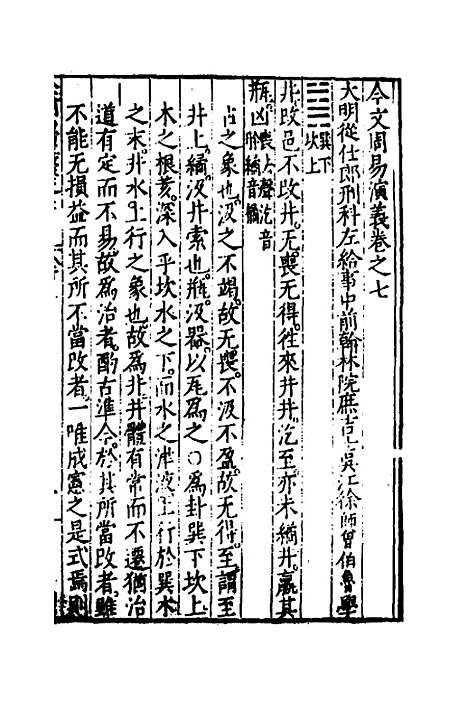 今文周易演義卷之七
大明從仕郎刑科左給事中前翰林院庶吉士吳江徐師曾伯魯學
巽下
坎上
井改邑不改井。无喪无得。往來井井。汔至。亦未繘井。羸其
瓶。凶。喪去聲汔音
肸繘音橘
占之象也。汲之不竭。故无喪。不汲不盈。故无得。至謂至
井上。繘汲井索也。瓶汲器。以瓦爲之○爲卦巽下坎上
木之根荄。深入乎坎水之下。而水之津液上行於巽木
之末。井水上行之象也。故爲井井體有常而不遷猶治
道有定而不易。故爲治者。酌古準今。於其所當改者。雖
不能无損益而其所不當改者。一唯成憲之是式焉則